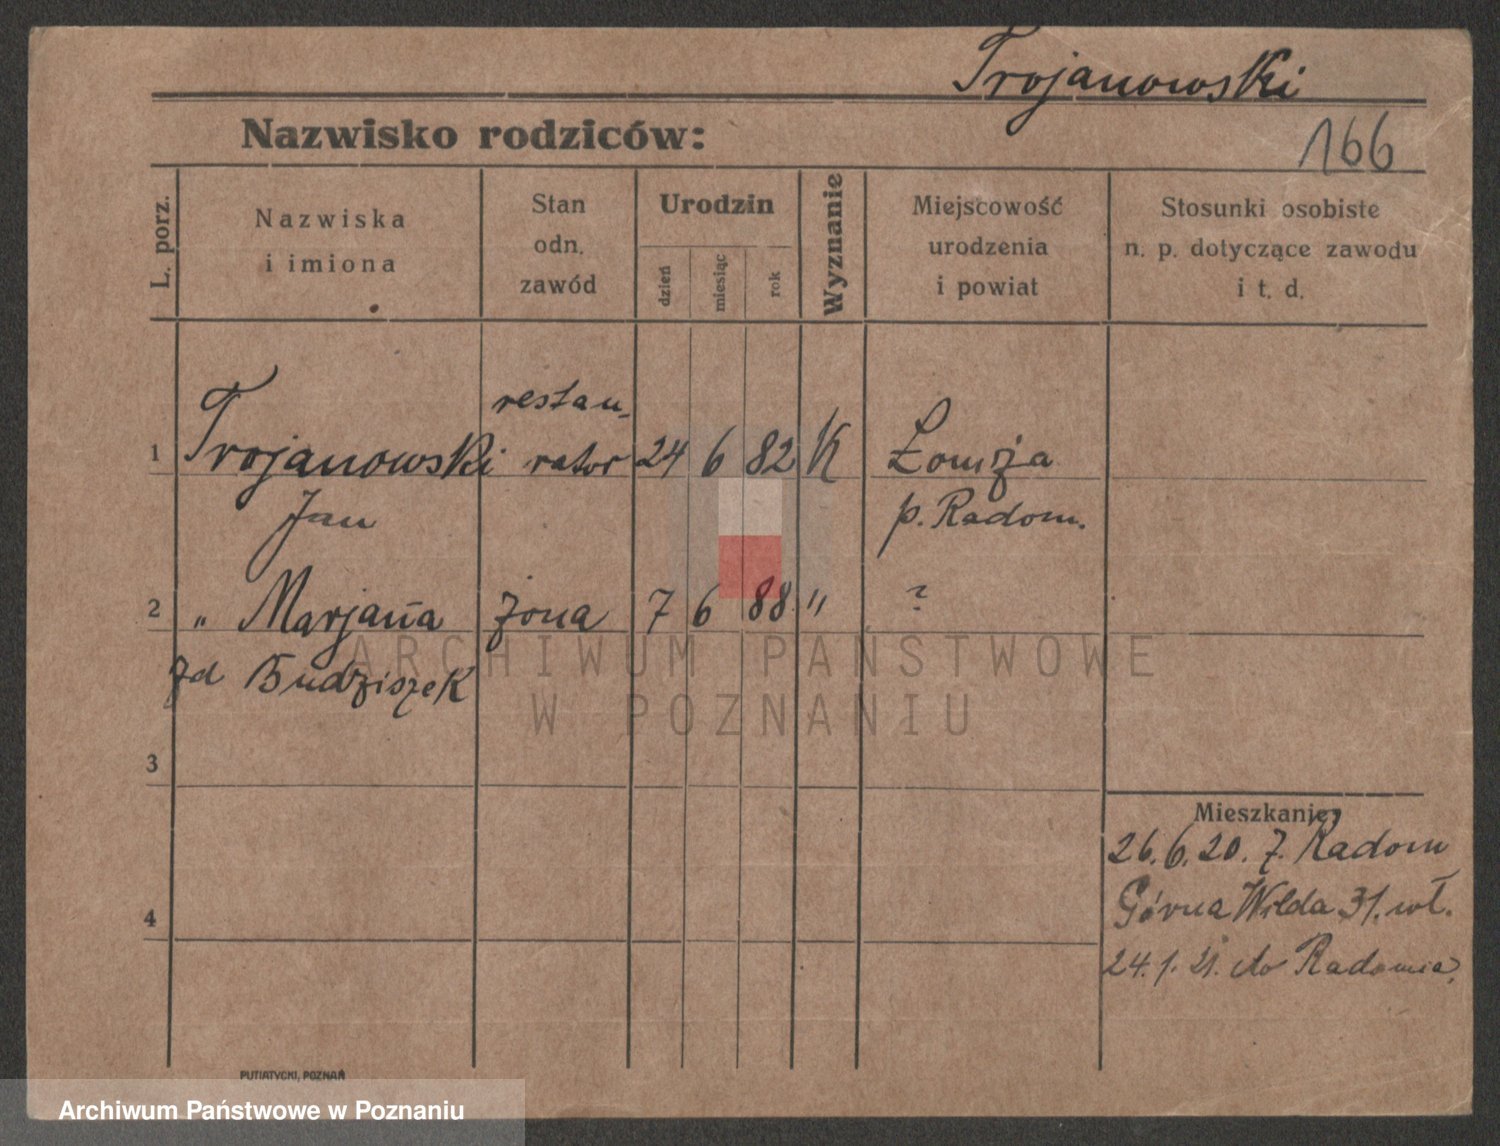 Trojanowski
Nazwisko rodziców:
166
L. porz.
Nazwiska
i imiona
Stan
odn.
zawód
Urodzin
dzień
miesiąc
rok
Wyznanie
Miejscowość
urodzenia
i powiat
Stosunki osobiste
n. p. dotyczące zawodu
i t. d.
restau-
1 Trojanowski rator 24 6 82 K Łomża
Jan p. Radom.
2 " Marjanna żona 7 6 88 " ?
zd Budziszek
ARCHIWUM PAŃSTWOWE
W POZNANIU
3
Mieszkanie
26.6.20. z. Radom
4 Górna Wilda 31. wł.
24.1.21. do Radomia.
PUTIATYCKI, POZNAŃ
Archiwum Państwowe w Poznaniu